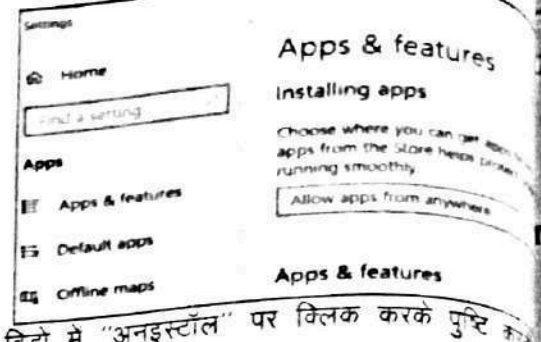 Settings
Home
Find a setting
Apps
Apps & features
Default apps
Offline maps
Apps & features
Installing apps
Choose where you can get apps
apps from the Store helps protect
running smoothly
Allow apps from anywhere
Apps & features
में "अनइस्टॉल" पर क्लिक करके पुष्टि